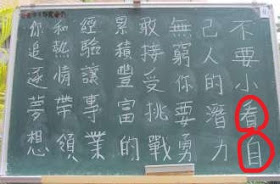 不要小看自
己人的潛力
無窮你要勇
敢持受挑戰
累積豐富的
經驗讓事業
和熱情帶領
你追逐夢想